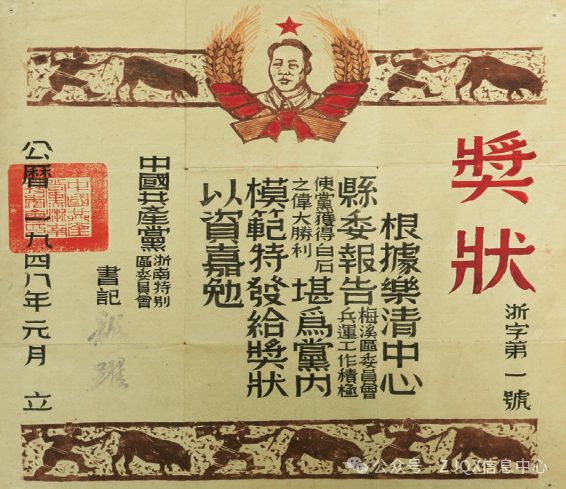 獎狀
浙字第一號
根據樂清中心
縣委報告
梅溪區委員會
兵運工作積極
使黨獲得白石
之偉大勝利
堪爲黨內
模範特發給獎狀
以資嘉勉
中國共產黨
浙南特別
區委員會
書記
龍躍
公曆一九四八年元月 立
公众号 · ZJQX信息中心